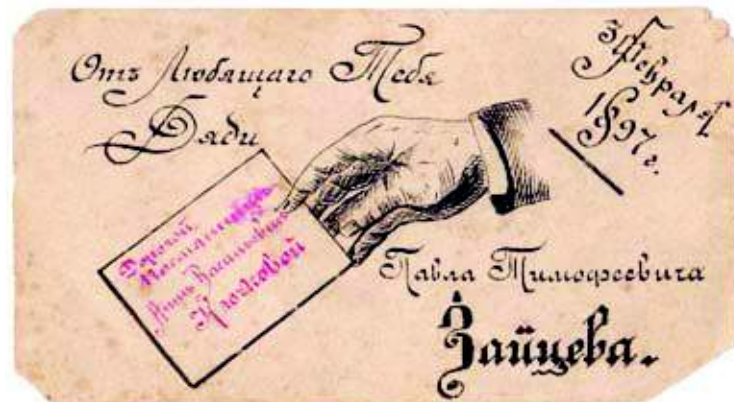 Отъ Любящаго Тебя
Дяди
3 Февраля
1897 г.
Дорогой
Племянницѣ
Аннѣ Васильевнѣ
Клочковой
Павла Тимофеевича
Зайцева.